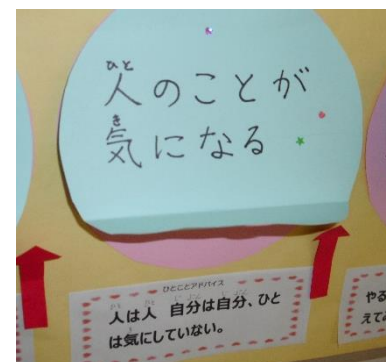 人のことが
気になる
ひとことアドバイス
人は人 自分は自分、ひと
は気にしていない。
やる
えてみ